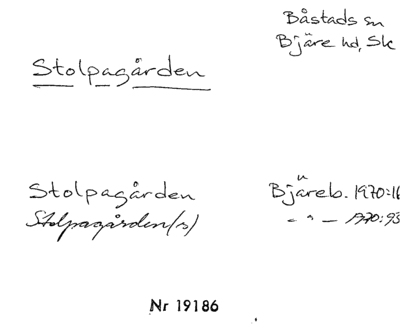 Båstads sn
Bjäre hd, Sk
Stolpagården
Stolpagården Bjäreb. 1970:16
Stolpagården(s) - " - 1970:93
Nr 19186